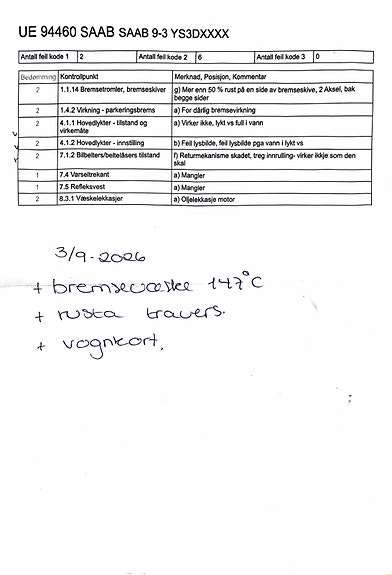 UE 94460 SAAB SAAB 9-3 YS3DXXXX
Antall feil kode 1 2 Antall feil kode 2 6 Antall feil kode 3 0
Bedømming Kontrollpunkt Merknad, Posisjon, Kommentar
2 1.1.14 Bremsetromler, bremseskiver g) Mer enn 50 % rust på en side av bremseskive, 2 Aksel, bak
begge sider
2 1.4.2 Virkning - parkeringsbrems a) For dårlig bremsevirkning
2 4.1.1 Hovedlykter - tilstand og a) Virker ikke, lykt vs full i vann
virkemåte
2 4.1.2 Hovedlykter - innstilling b) Feil lysbilde, feil lysbilde pga vann i lykt vs
2 7.1.2 Bilbelters/beltelåsers tilstand f) Returmekanisme skadet, treg innrulling- virker ikkje som den
skal
1 7.4 Varseltrekant a) Mangler
1 7.5 Refleksvest a) Mangler
2 8.3.1 Væskelekkasjer a) Oljelekkasje motor
3/9-2026
+ bremsevæske 147°C
+ rusta travers.
+ vognkort.